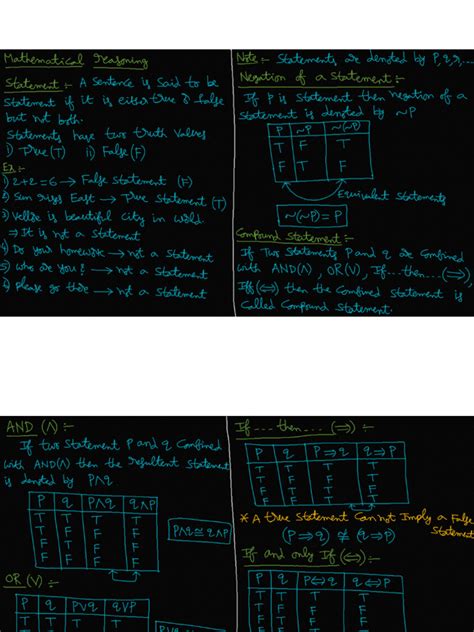 Mathematical Reasoning
Statement :- A sentence is said to be
statement if it is either true or false
but not both.
Statements have two truth values
i) True (T) ii) False (F)
Ex:-
1) 2+2=6 → False statement (F)
2) Sun rises East → True statement (T)
3) is beautiful city in world.
⇒ It is not a statement
4) Do your homework → not a statement
5) Who are you? → not a statement
6) Please go there → not a statement
Note:- Statements are denoted by P, q, r,...
Negation of a statement:-
If P is statement then negation of a
statement is denoted by ~P
P ~P ~(~P)
T F T
F T F
Equivalent statements
~(~P) = P
Compound statement:-
If Two statements P and q are combined
with AND(∧), OR(∨), If...then...(⇒),
Iff(⇔) then the combined statement is
called compound statement.
AND (∧) :-
If two statement P and q combined
with AND(∧) then the resultent statement
is denoted by P∧q
P q P∧q q∧P
T T T T
T F F F
F T F F
F F F F
P∧q ≅ q∧P
OR (∨) :-
P q P∨q q∨P
T T T T
If ---- then ---- (⇒) :-
P q P⇒q q⇒P
T T T T
T F F T
F T T F
F F T T
* A true statement cannot imply a false
statement
(P⇒q) ≇ (q⇒P)
If and only If (⇔) :-
P q P⇔q q⇔P
T T T T
T F F F
F T F F